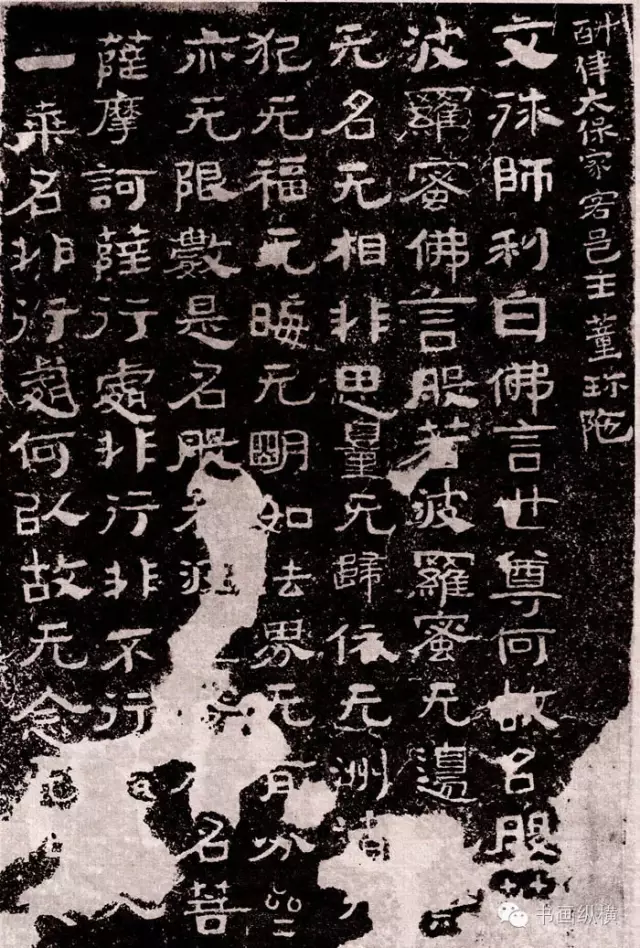 斛律大保家客邑主董珍陀
文殊師利白佛言世尊何故名般
波羅蜜佛言般若波羅蜜无邊
无名无相非思量无歸依无洲渚
犯无福无晦无明如法界无有分
亦无限數是名般若波 名菩
薩摩訶薩行處非行非不行
一乘名非行處何以故无念
书画纵横